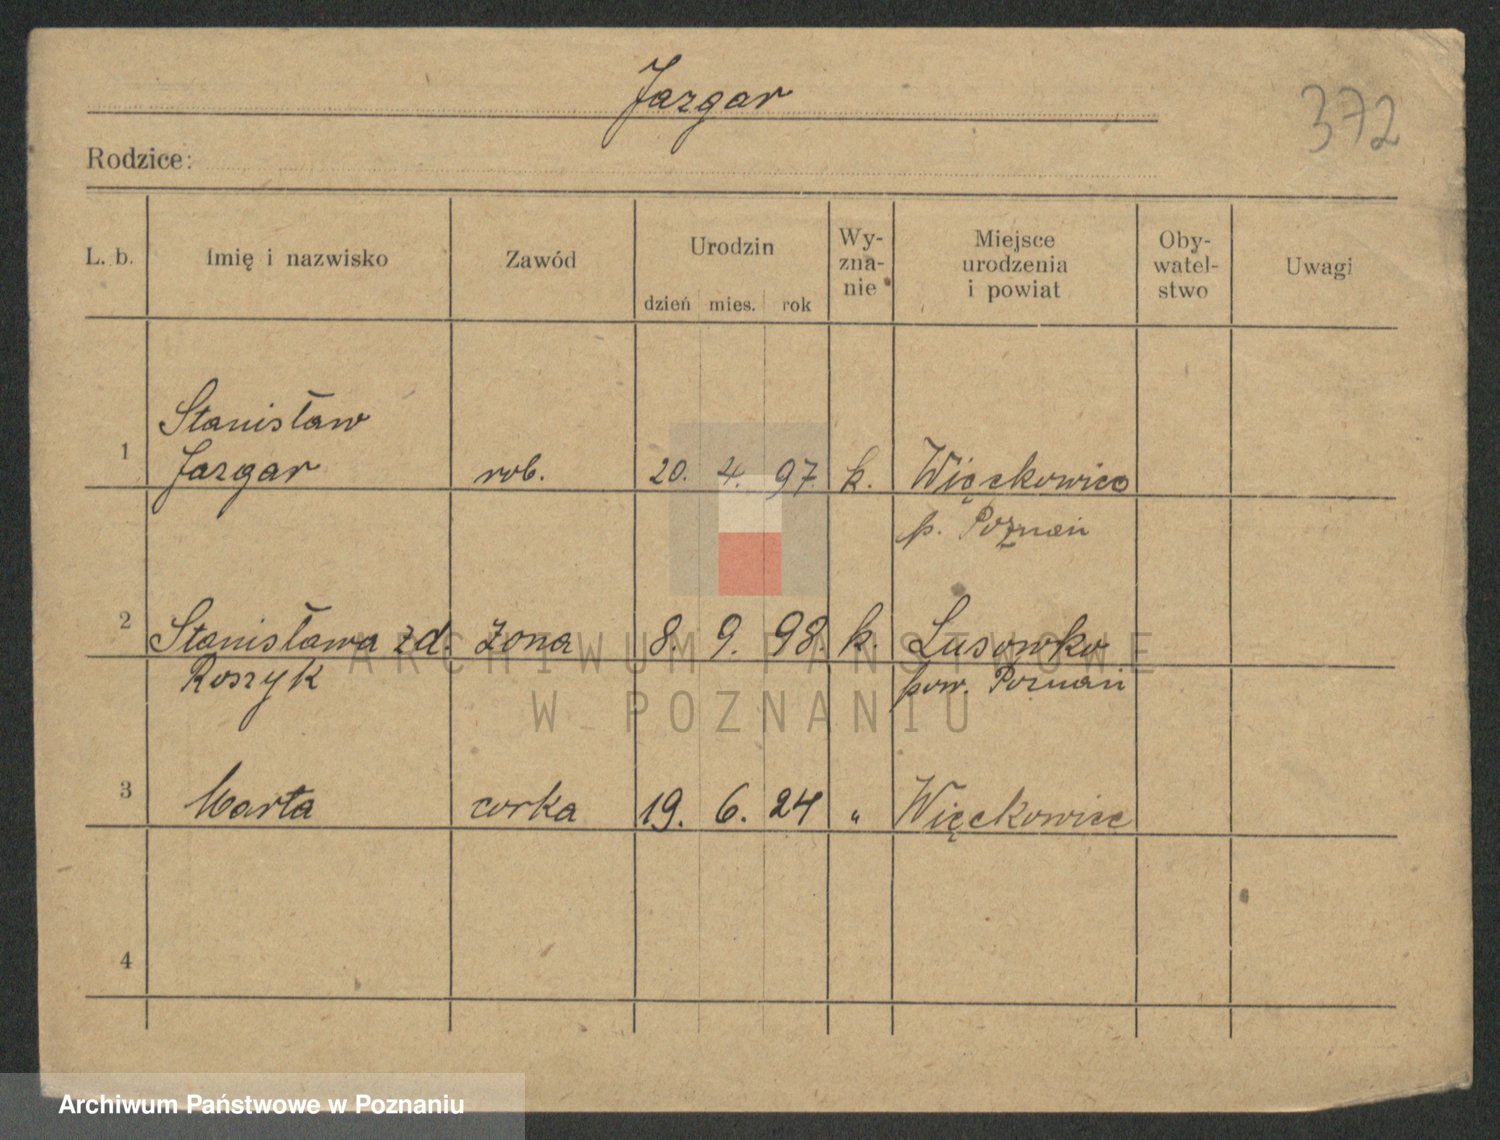 Jazgar
372
Rodzice:
L. b.
Imię i nazwisko
Zawód
Urodzin
dzień mies. rok
Wy-
zna-
nie
Miejsce
urodzenia
i powiat
Oby-
watel-
stwo
Uwagi
Stanisław
1 Jazgar rob. 20. 4. 97. k. Więckowice
p. Poznań
2 Stanisława zd. żona 8. 9. 98. k. Lusowko
Roszyk pow. Poznań
3 Marta corka 19. 6. 24 " Więckowice
4
ARCHIWUM PAŃSTWOWE
W POZNANIU
Archiwum Państwowe w Poznaniu